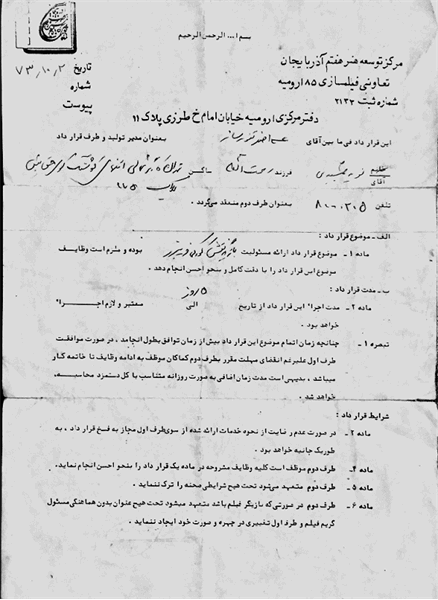 بسم ا... الرحمن الرحیم
مرکز توسعه هنر هفتم آذربایجان
تعاونی فیلمسازی ۸۵ ارومیه
شماره ثبت ۲۱۳۲
تاریخ ۷۳,۱۰,۲
شماره
پیوست
دفتر مرکزی ارومیه خیابان امام خ طرزی پلاک ۱۱
این قرار داد فی ما بین آقای بعنوان مدیر تولید و طرف قرار داد
خانم
آقای فرزند ساکن
تلفن بعنوان طرف دوم منعقد می‌گردد .
الف - موضوع قرار داد :
ماده ۱ - موضوع قرار داد ارائه مسئولیت بوده و ملزم است وظایف
موضوع این قرار داد را با دقت کامل و بنحو احسن انجام دهد .
ب - مدت قرار داد :
ماده ۲ - مدت اجراء این قرار داد از تاریخ ۵ روز الی معتبر و لازم اجراء
خواهد بود .
تبصره ۱ - چنانچه زمان اتمام موضوع این قرار داد بیش از زمان توافق بطول انجامد ، در صورت موافقت
طرف اول علیرغم انقضای مهلت مقرر بطرف دوم کماکان موظف به ادامه وظایف تا خاتمه کار
میباشد ، بدیهی است مدت زمان اضافی به صورت روزانه متناسب با کل دستمزد محاسبه
خواهد شد .
شرایط قرار داد :
ماده ۳ - در صورت عدم رضایت از نحوه خدمات ارائه شده از سوی طرف اول مجاز به فسخ قرار داد ، به
طور یک جانبه خواهد بود .
ماده ۴ - طرف دوم موظف است کلیه وظایف مشروحه در ماده یک قرار داد را بنحو احسن انجام نماید.
ماده ۵ - طرف دوم متعهد می‌شود تحت هیچ شرایطی صحنه را ترک ننماید .
ماده ۶ - طرف دوم در صورتی که بازیگر فیلم باشد متعهد میشود تحت هیچ عنوان بدون هماهنگی مسئول
گریم فیلم و طرف اول تغییری در چهره و صورت خود ایجاد ننماید .